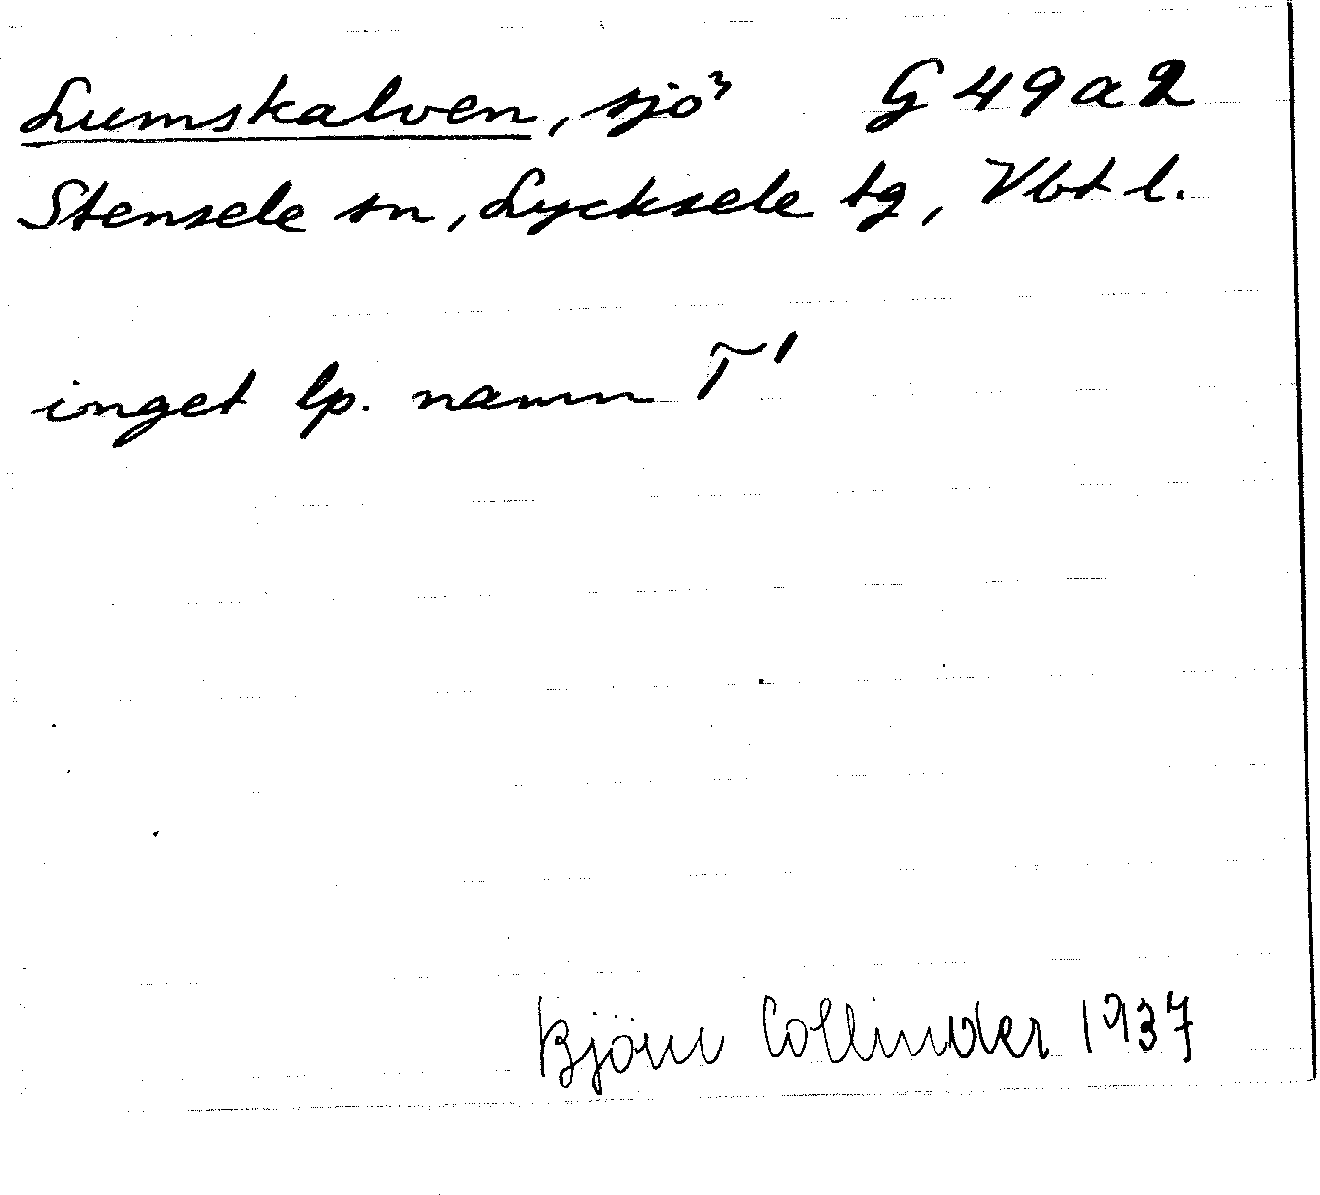 Lumskalven, sjö G 49 a 2
Stensele sn, Lycksele tg, Vbt l.
inget lp. namn T¹
Björn Collinder 1937